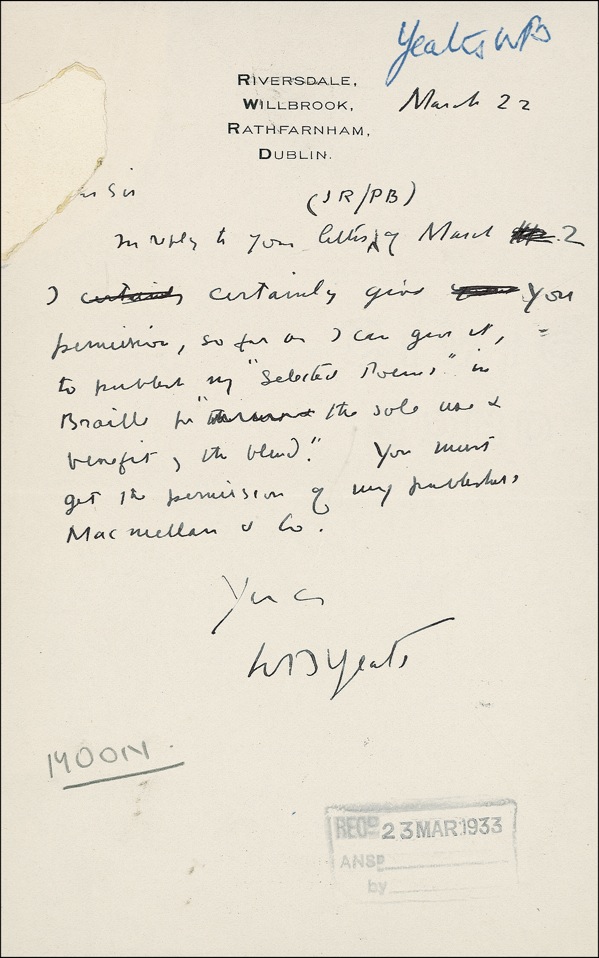 Yeats WB
RIVERSDALE,
WILLBROOK,
RATHFARNHAM,
DUBLIN.
March 22
Sir
(JR/PB)
In reply to your letter of March 2
I certainly certainly give you
permission, so far as I can give it,
to publish my "Selected Poems" in
Braille for " the sole use &
benefit of the blind." You must
get the permission of my publishers
Macmillan & Co.
Yrs
WB Yeats
MOON
RECD 23 MAR 1933
ANSD
by